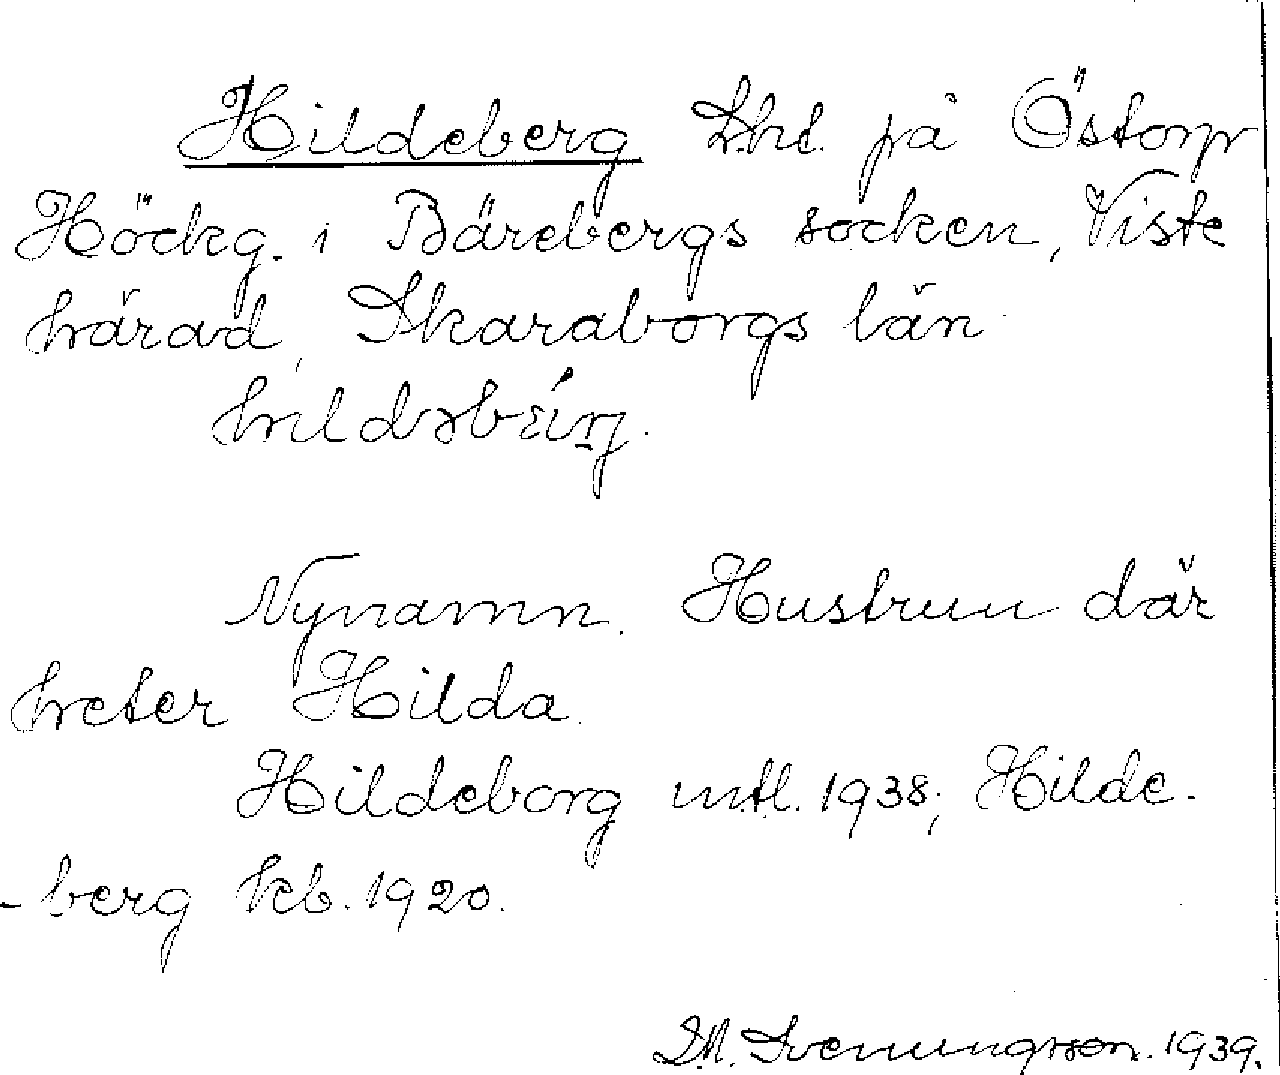 Hildeberg Lht. på Östorp
Höckg. i Bärebergs socken, Viste
härad, Skaraborgs län
Nynamn. Hustrun där
heter Hilda.
Hildeborg mtl. 1938; Hilde-
-berg kb. 1920.
Svenungsson. 1939.